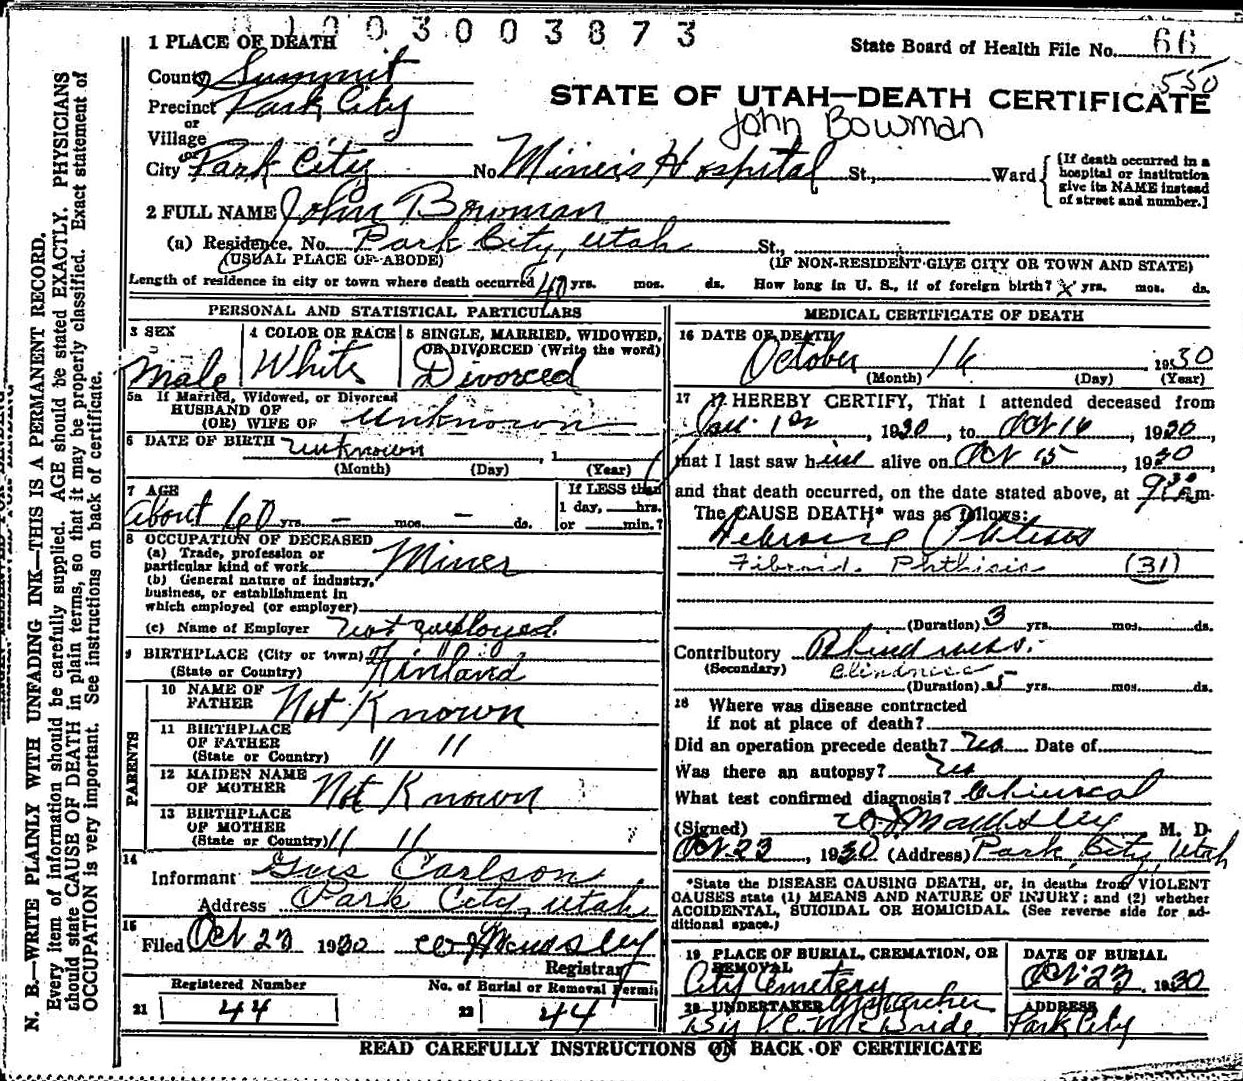 1003003873
State Board of Health File No. 66
550
STATE OF UTAH—DEATH CERTIFICATE
John Bowman
1 PLACE OF DEATH
County Summit
Precinct Park City
or
Village
or
City Park City No. Miners Hospital St., Ward
[If death occurred in a
hospital or institution
give its NAME instead
of street and number.]
2 FULL NAME John Bowman
(a) Residence. No. Park City, Utah St.,
(USUAL PLACE OF ABODE) (IF NON-RESIDENT GIVE CITY OR TOWN AND STATE)
Length of residence in city or town where death occurred 40 yrs. mos. ds. How long in U. S., if of foreign birth? x yrs. mos. ds.
PERSONAL AND STATISTICAL PARTICULARS
3 SEX
Male
4 COLOR OR RACE
White
5 SINGLE, MARRIED, WIDOWED,
OR DIVORCED (Write the word)
Divorced
5a If Married, Widowed, or Divorced
HUSBAND OF
(OR) WIFE OF unknown
6 DATE OF BIRTH unknown , 1
(Month) (Day) (Year)
7 AGE
about 60 yrs. — mos. — ds.
If LESS than
1 day, hrs.
or min.?
8 OCCUPATION OF DECEASED
(a) Trade, profession or
particular kind of work Miner
(b) General nature of industry,
business, or establishment in
which employed (or employer)
(c) Name of Employer not employed.
9 BIRTHPLACE (City or town)
(State or Country) Finland
PARENTS
10 NAME OF
FATHER Not Known
11 BIRTHPLACE
OF FATHER
(State or Country) " "
12 MAIDEN NAME
OF MOTHER Not Known
13 BIRTHPLACE
OF MOTHER
(State or Country) " "
14
Informant Gus Carlson
Address Park City, Utah
15
Filed Oct 23 1930
Registrar
Registered Number
21 44
No. of Burial or Removal Permit
22 44
MEDICAL CERTIFICATE OF DEATH
16 DATE OF DEATH
October 16 1930
(Month) (Day) (Year)
17 I HEREBY CERTIFY, That I attended deceased from
Jan. 1st, 1930, to Oct 16, 1930,
that I last saw him alive on Oct 15, 1930
and that death occurred, on the date stated above, at 9:30 A.m.
The CAUSE DEATH* was as follows:
Fibroid Phthisis (31)
(Duration) 3 yrs. mos. ds.
Contributory Blindness.
(Secondary) Blindness
(Duration) 5 yrs. mos. ds.
18 Where was disease contracted
if not at place of death?
Did an operation precede death? no Date of
Was there an autopsy? no
What test confirmed diagnosis? Clinical
(Signed) M. D.
Oct. 23, 1930 (Address) Park City, Utah
*State the DISEASE CAUSING DEATH, or, in deaths from VIOLENT
CAUSES state (1) MEANS AND NATURE OF INJURY; and (2) whether
ACCIDENTAL, SUICIDAL OR HOMICIDAL. (See reverse side for ad-
ditional space.)
19 PLACE OF BURIAL, CREMATION, OR
REMOVAL
City Cemetery
DATE OF BURIAL
Oct 23, 1930
20 UNDERTAKER
By V. C. McBride
ADDRESS
Park City
READ CAREFULLY INSTRUCTIONS ON BACK OF CERTIFICATE
N. B.—WRITE PLAINLY WITH UNFADING INK—THIS IS A PERMANENT RECORD.
Every item of information should be carefully supplied. AGE should be stated EXACTLY. PHYSICIANS
should state CAUSE OF DEATH in plain terms, so that it may be properly classified. Exact statement of
OCCUPATION is very important. See instructions on back of certificate.